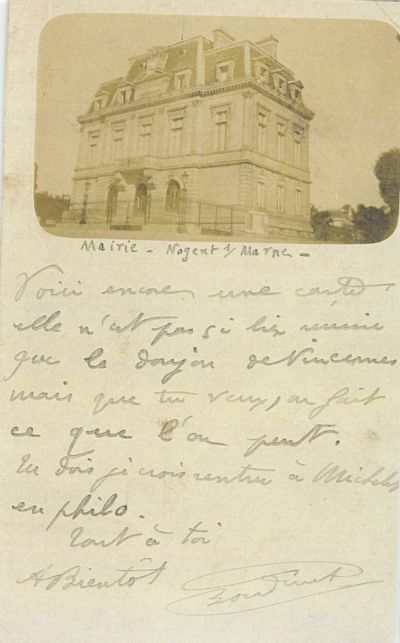 Mairie - Nogent s/ Marne -
Voici encore une carte
elle n'est pas si bien réussie
que le donjon de Vincennes
mais que tu veux, on fait
ce que l'on peut.
Tu dois je crois rentrer à Michelet
en philo.
Tout à toi
A Bientôt